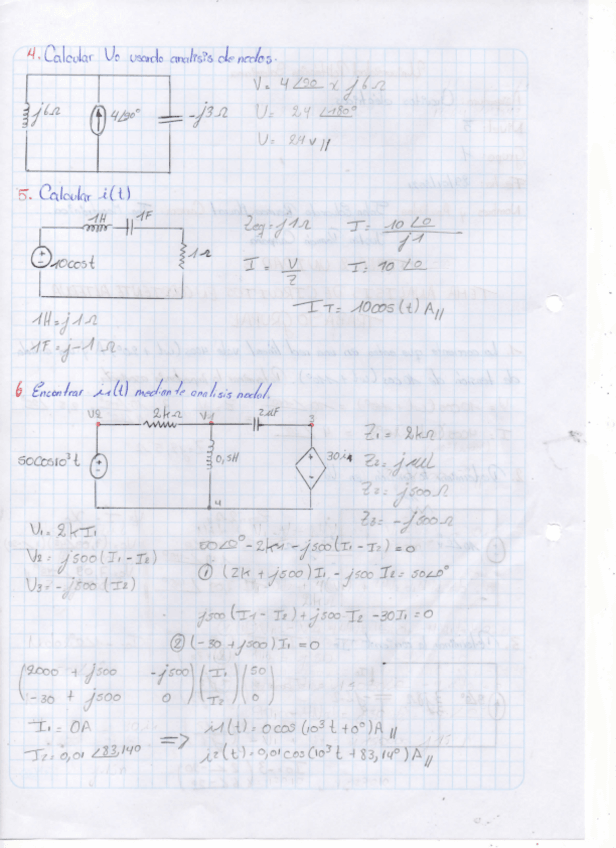 4. Calcular Vo usando analisis de nodos.
j6Ω
4∠90°
-j3Ω
V= 4∠90 x j6Ω
U= 24 ∠180°
U= 24 v //
5. Calcular i(t)
1H
1F
10cost
1Ω
1H=j1Ω
1F=j-1Ω
Zeq=j1Ω
I = V/Z
I = 10∠0 / j1
I= 10∠0
IT= 10cos(t) A//
6 Encontrar i1(t) mediante analisis nodal.
V2
2kΩ
V1
2uF
3
50cos10³t
0,5H
4
Z1 = 2kΩ
Z2 = jωL
Z2 = j500Ω
Z3 = -j500Ω
V1 = 2kI1
V2 = j500(I1-I2)
V3 = -j500(I2)
-j500(I1-I2)=0
① (2k+j500)I1 -j500 I2 = 50∠0°
j500(I1-I2)+j500 I2 -30I1=0
② (-30+j500)I1=0
2000 + j500 -j500 I1 50
-30 + j500 0 I2 0
I1= 0A
I2= 0,01 ∠83,140
=>
i1(t)= 0cos(10³t+0°)A//
i2(t)=0,01cos(10³t+83,14°)A//